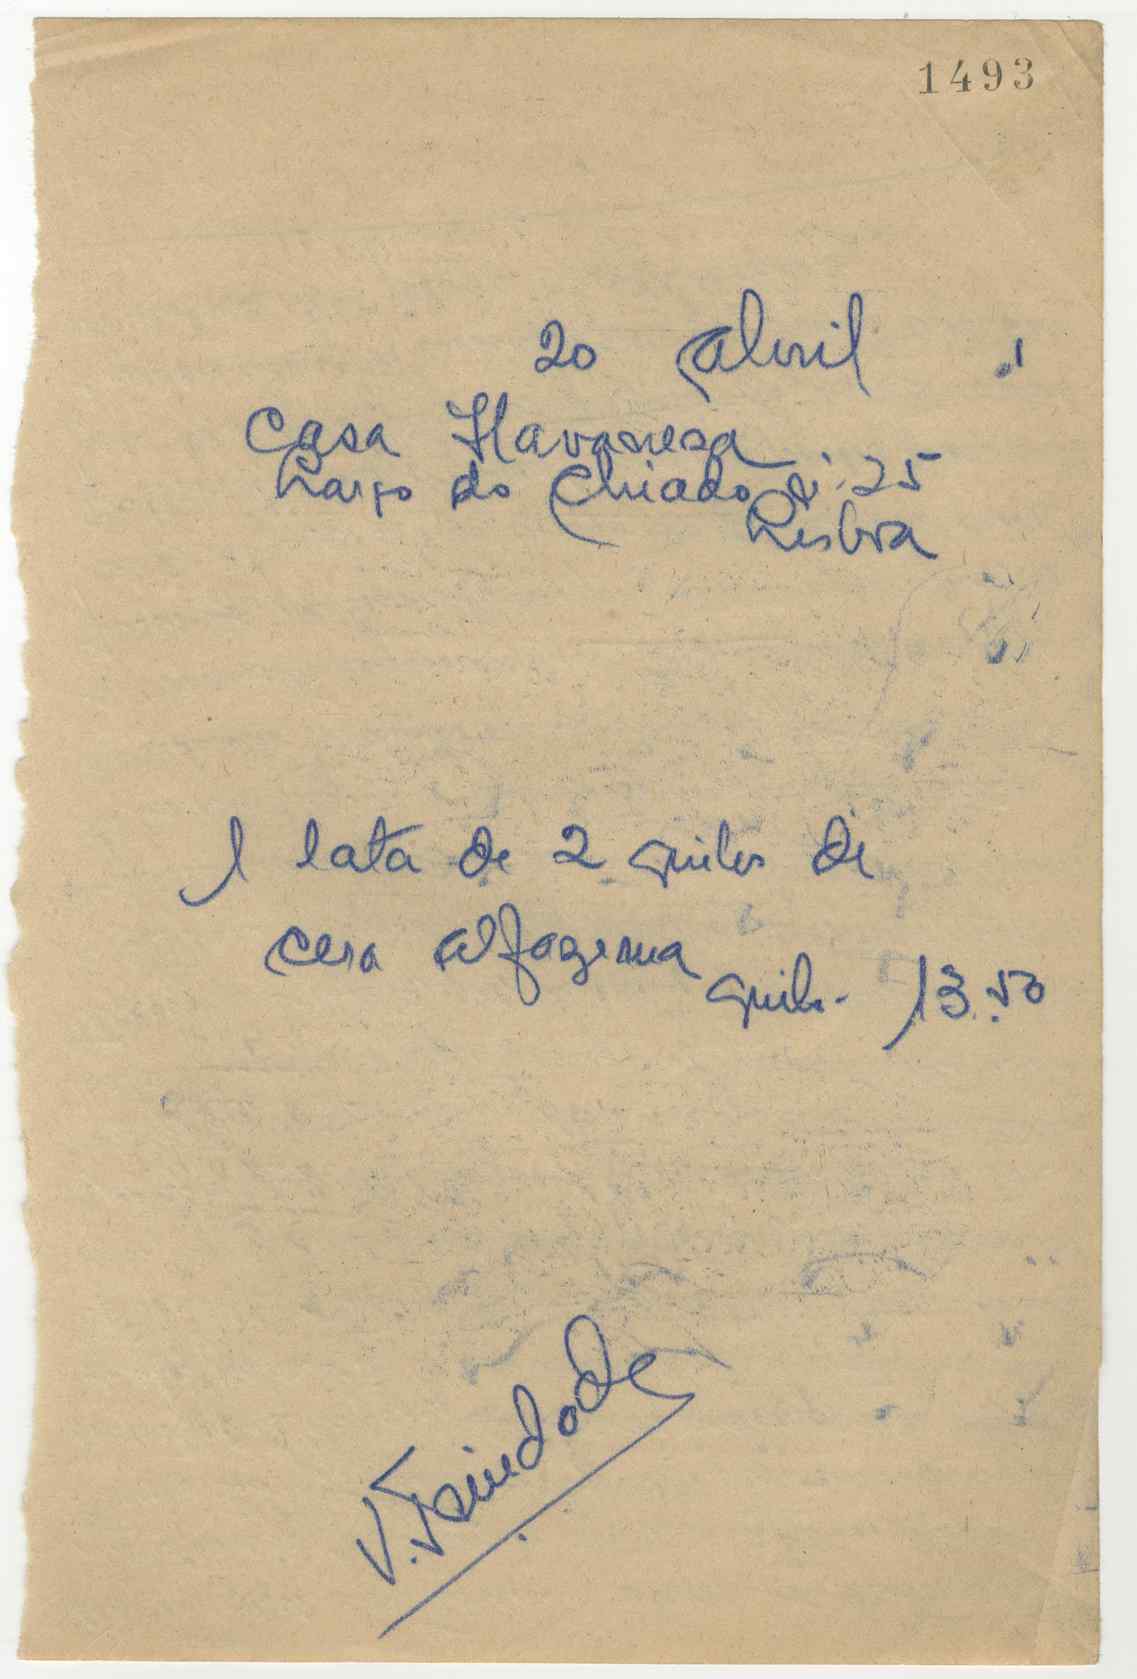 1493
20 abril
Casa Havanesa
Largo do Chiado nº. 25
Lisboa
1 lata de 2 quilos de
cera alfazema
quilo - 13.50
V. Trindade